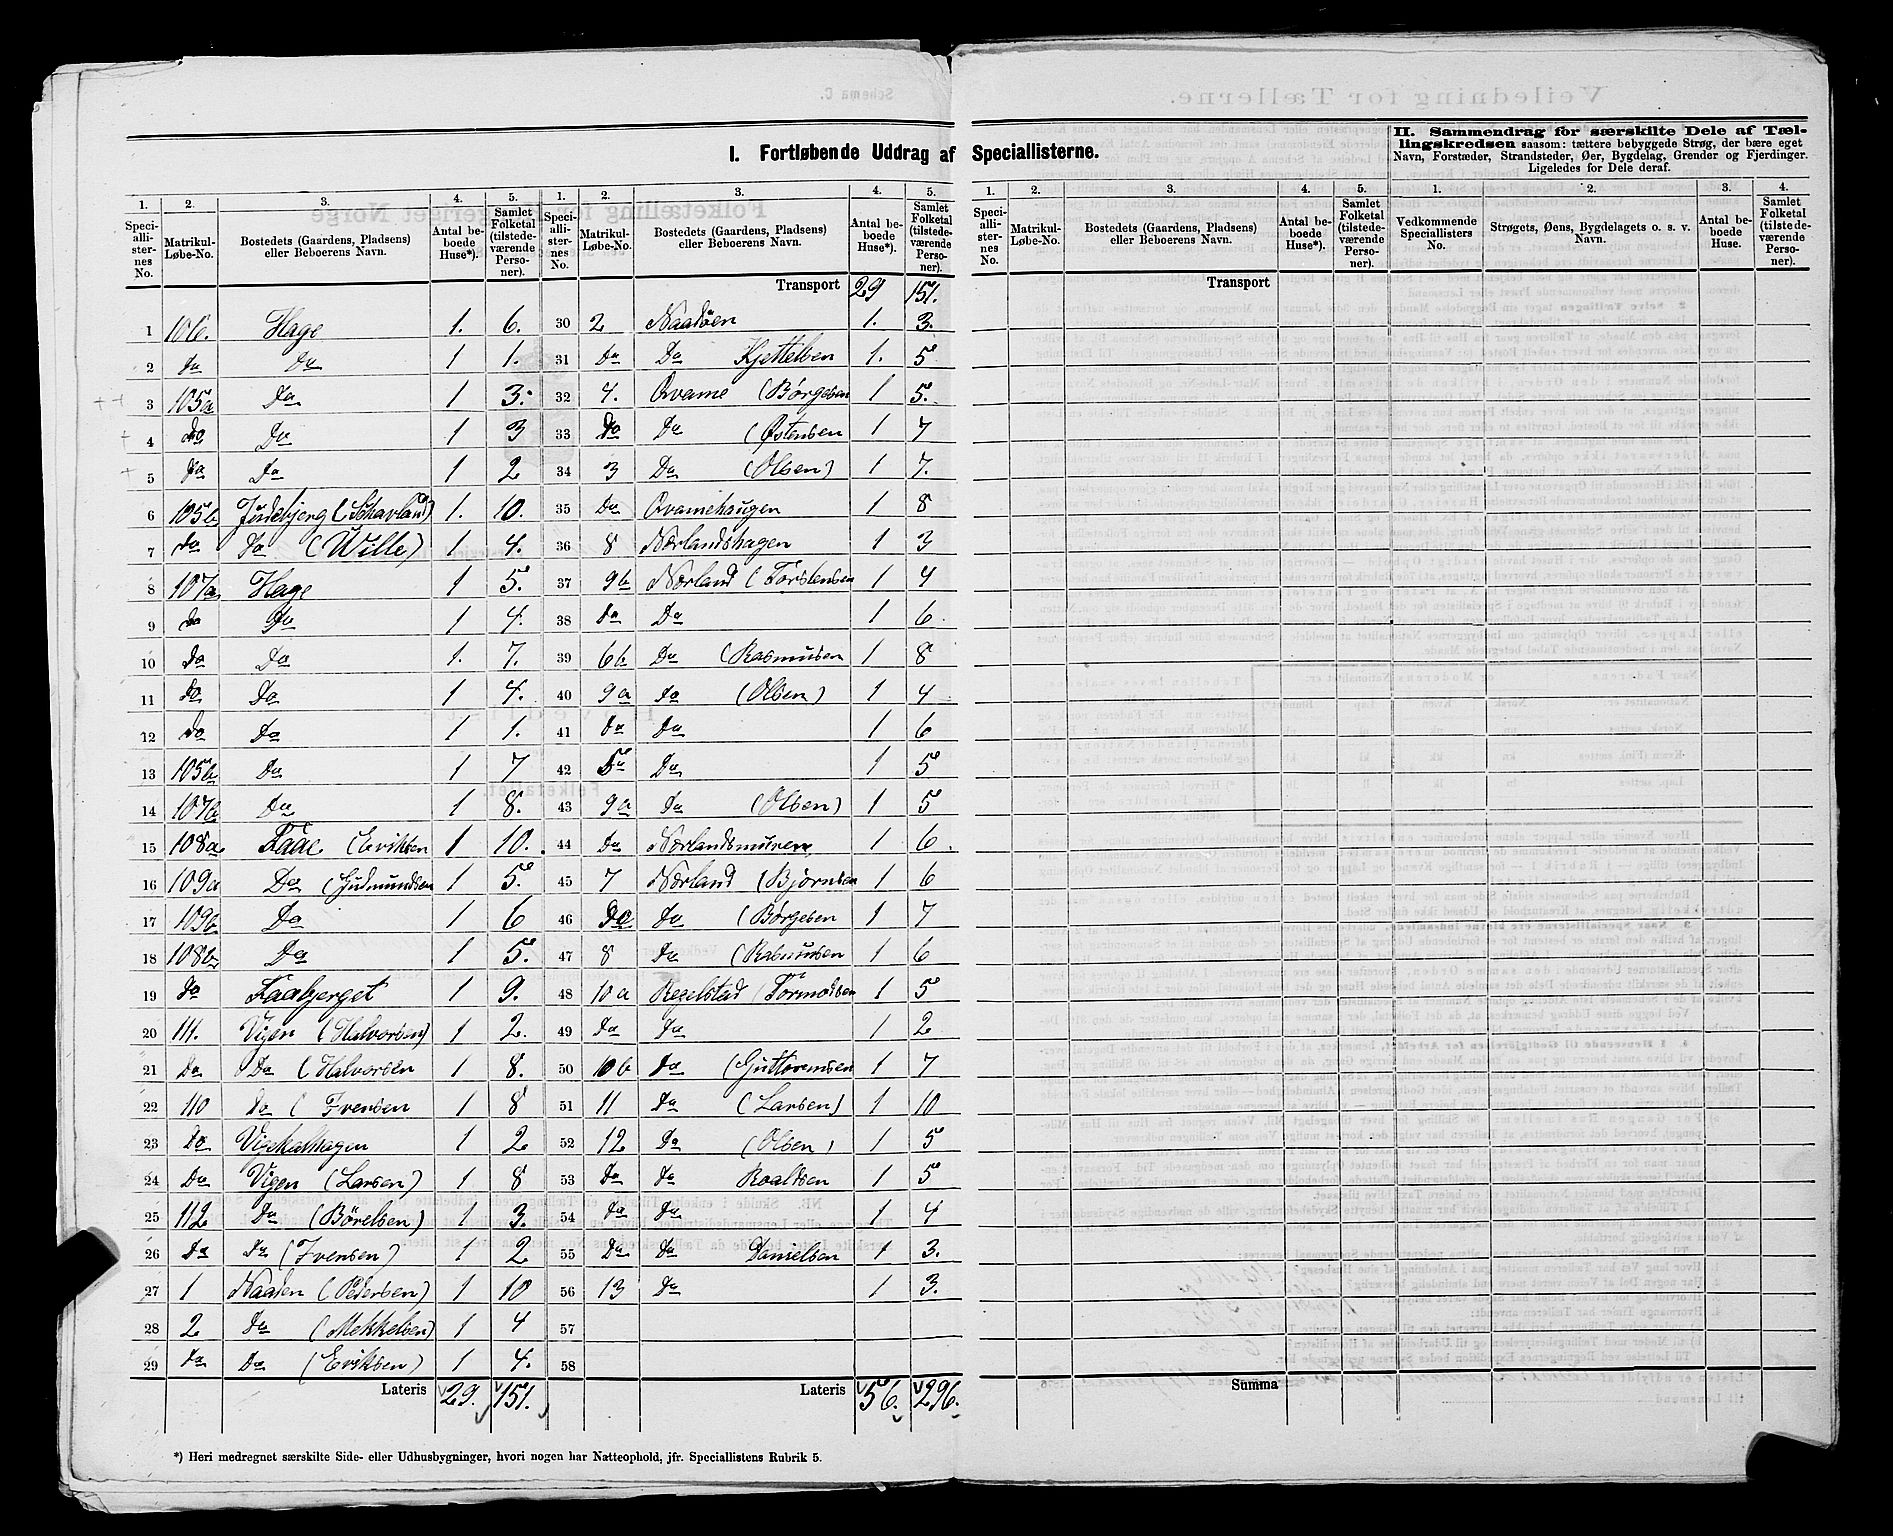 I. Fortløbende Uddrag af Speciallisterne.
II. Sammendrag for særskilte Dele af Tæl-
lingskredsen saasom: tættere bebyggede Strøg, der bære eget
Navn, Forstæder, Strandsteder, Øer, Bygdelag, Grender og Fjerdinger.
Ligeledes for Dele deraf.
1. 2. 3. 4. 5. 1. 2. 3. 4. 5.
Speciallisternes No. Matrikul-Løbe-No. Bostedets (Gaardens, Pladsens) eller Beboerens Navn. Antal beboede Huse*). Samlet Folketal (tilstedeværende Personer). Speciallisternes No. Matrikul-Løbe-No. Bostedets (Gaardens, Pladsens) eller Beboerens Navn. Antal beboede Huse*). Samlet Folketal (tilstedeværende Personer).
Transport 29 151.
1 106. Hage 1. 6.
2 do Do 1 1.
3 105a Do 1 3.
4 do Do 1 3
5 do Do 1 2
6 105b 1. 10.
7 do Do (Wille) 1 4.
8 107a Hage 1 5.
9 do Do 1 4.
10 do Do 1. 7.
11 do Do 1 4.
12 do Do 1 1.
13 105b Do 1 7
14 107b Do 1 8.
15 108a Faae (Eriksen 1 10.
16 109a Do (Gudmundsen 1 5.
17 109b Do 1 6
18 108b Do 1 5.
19 do Faabjerget 1 9.
20 111. Vigen (Halvorsen) 1 2.
21 Do Do (Halvorsen 1 8.
22 110 Do (Iversen 1 8
23 Do 1 2
24 Do Vigen (Larsen) 1 8
25 112 Do (Börelsen) 1 3.
26 Do Do (Iversen) 1 2
27 1 Naaden (Pedersen) 1 10
28 2 Do (Mekkelsen) 1 4
29 Do Do (Eriksen) 1 4.
Lateris 29. 151.
30 2 1. 3.
31 Do Do Kjettelsen 1. 5
32 4. Qvame (Börgesen 1 5.
33 Do Do (Östensen 1 7
34 3 Do (Olsen) 1 7.
35 Do Qvamehaugen 1 8
36 8 Nærlandshagen 1 3
37 9b Nærland (Torstensen 1 4
38 Do Do 1 6.
39 6b Do (Rasmusen 1 8
40 9a Do (Olsen) 1 4
41 Do Do 1 6
42 Do 1 5
43 9a Do (Olsen) 1 5
44 Do Nærlandsmuren 1 6.
45 7 Nærland (Björnsen 1 6
46 Do Do (Börgesen 1 7
47 8 Do (Rasmusen 1 6
48 10a Regelstad (Tormodsen 1 5
49 Do Do 1 2
50 10b Do (Guttormsen 1 7
51 11 Do (Larsen) 1 10
52 12 Do (Olsen) 1 5
53 Do Do Roaldsen 1 5
54 Do Do 1 4
55 Do Do Danielsen 1 3.
56 13 Do 1 3.
57
58
Lateris 56. 296.
1. 2. 3. 4. 5. 1. 2. 3. 4.
Speciallisternes No. Matrikul-Løbe-No. Bostedets (Gaardens, Pladsens) eller Beboerens Navn. Antal beboede Huse*). Samlet Folketal (tilstedeværende Personer). Vedkommende Speciallisters No. Strøgets, Øens, Bygdelagets o. s. v. Navn. Antal beboede Huse. Samlet Folketal (tilstedeværende Personer).
Transport
Summa
*) Heri medregnet særskilte Side- eller Udhusbygninger, hvori nogen har Natteophold, jfr. Speciallistens Rubrik 5.